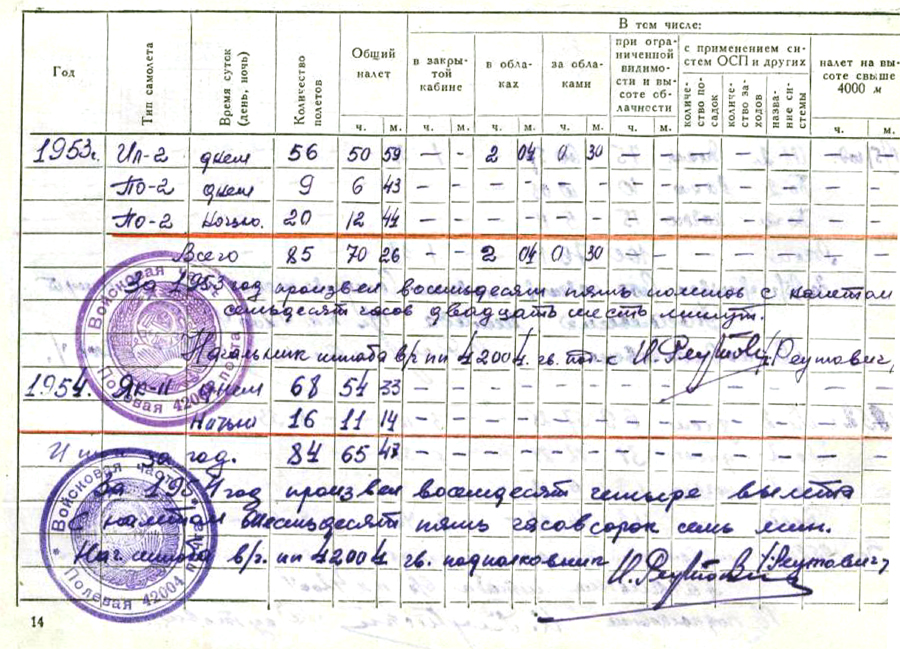 В том числе:
Год Тип самолета Время суток (день, ночь) Количество полетов Общий налет в закрытой кабине в облаках за облаками при ограниченной видимости и высоте облачности с применением систем ОСП и других налет на высоте свыше 4000 м
количество посадок количество заходов название системы
ч. м. ч. м. ч. м. ч. м. ч. м. ч. м.
1953г. Ил-2 днем 56 50 59 – – 2 04 0 30 – – – – – – –
ПО-2 днем 9 6 43 – – – – – – – – – – – – –
ПО-2 Ночью. 20 12 44 – – – – – – – – – – – – –
Всего 85 70 26 – – 2 04 0 30 – – – – – – –
За 1953 год произвел восемьдесят пять полетов с налетом
семьдесят часов двадцать шесть минут.
Начальник штаба в/ч пп 42004. гв. п-к И. Реутович /Реутович/
1954. Як-11 днем 68 54 33 – – – – – – – – – – – – –
Ночью 16 11 14 – – – – – – – – – – – –
Итого за год. 84 65 47 – – – – – – – – – – – – –
За 1954 год произвел восемдесят четыре вылета
с налетом шестьдесят пять часов сорок семь мин.
Нач. штаба в/ч. пп 42004 гв. подполковник И. Реутович /Реутович/
Войсковая часть
Полевая почта 42004
Войсковая часть
Полевая почта 42004
14